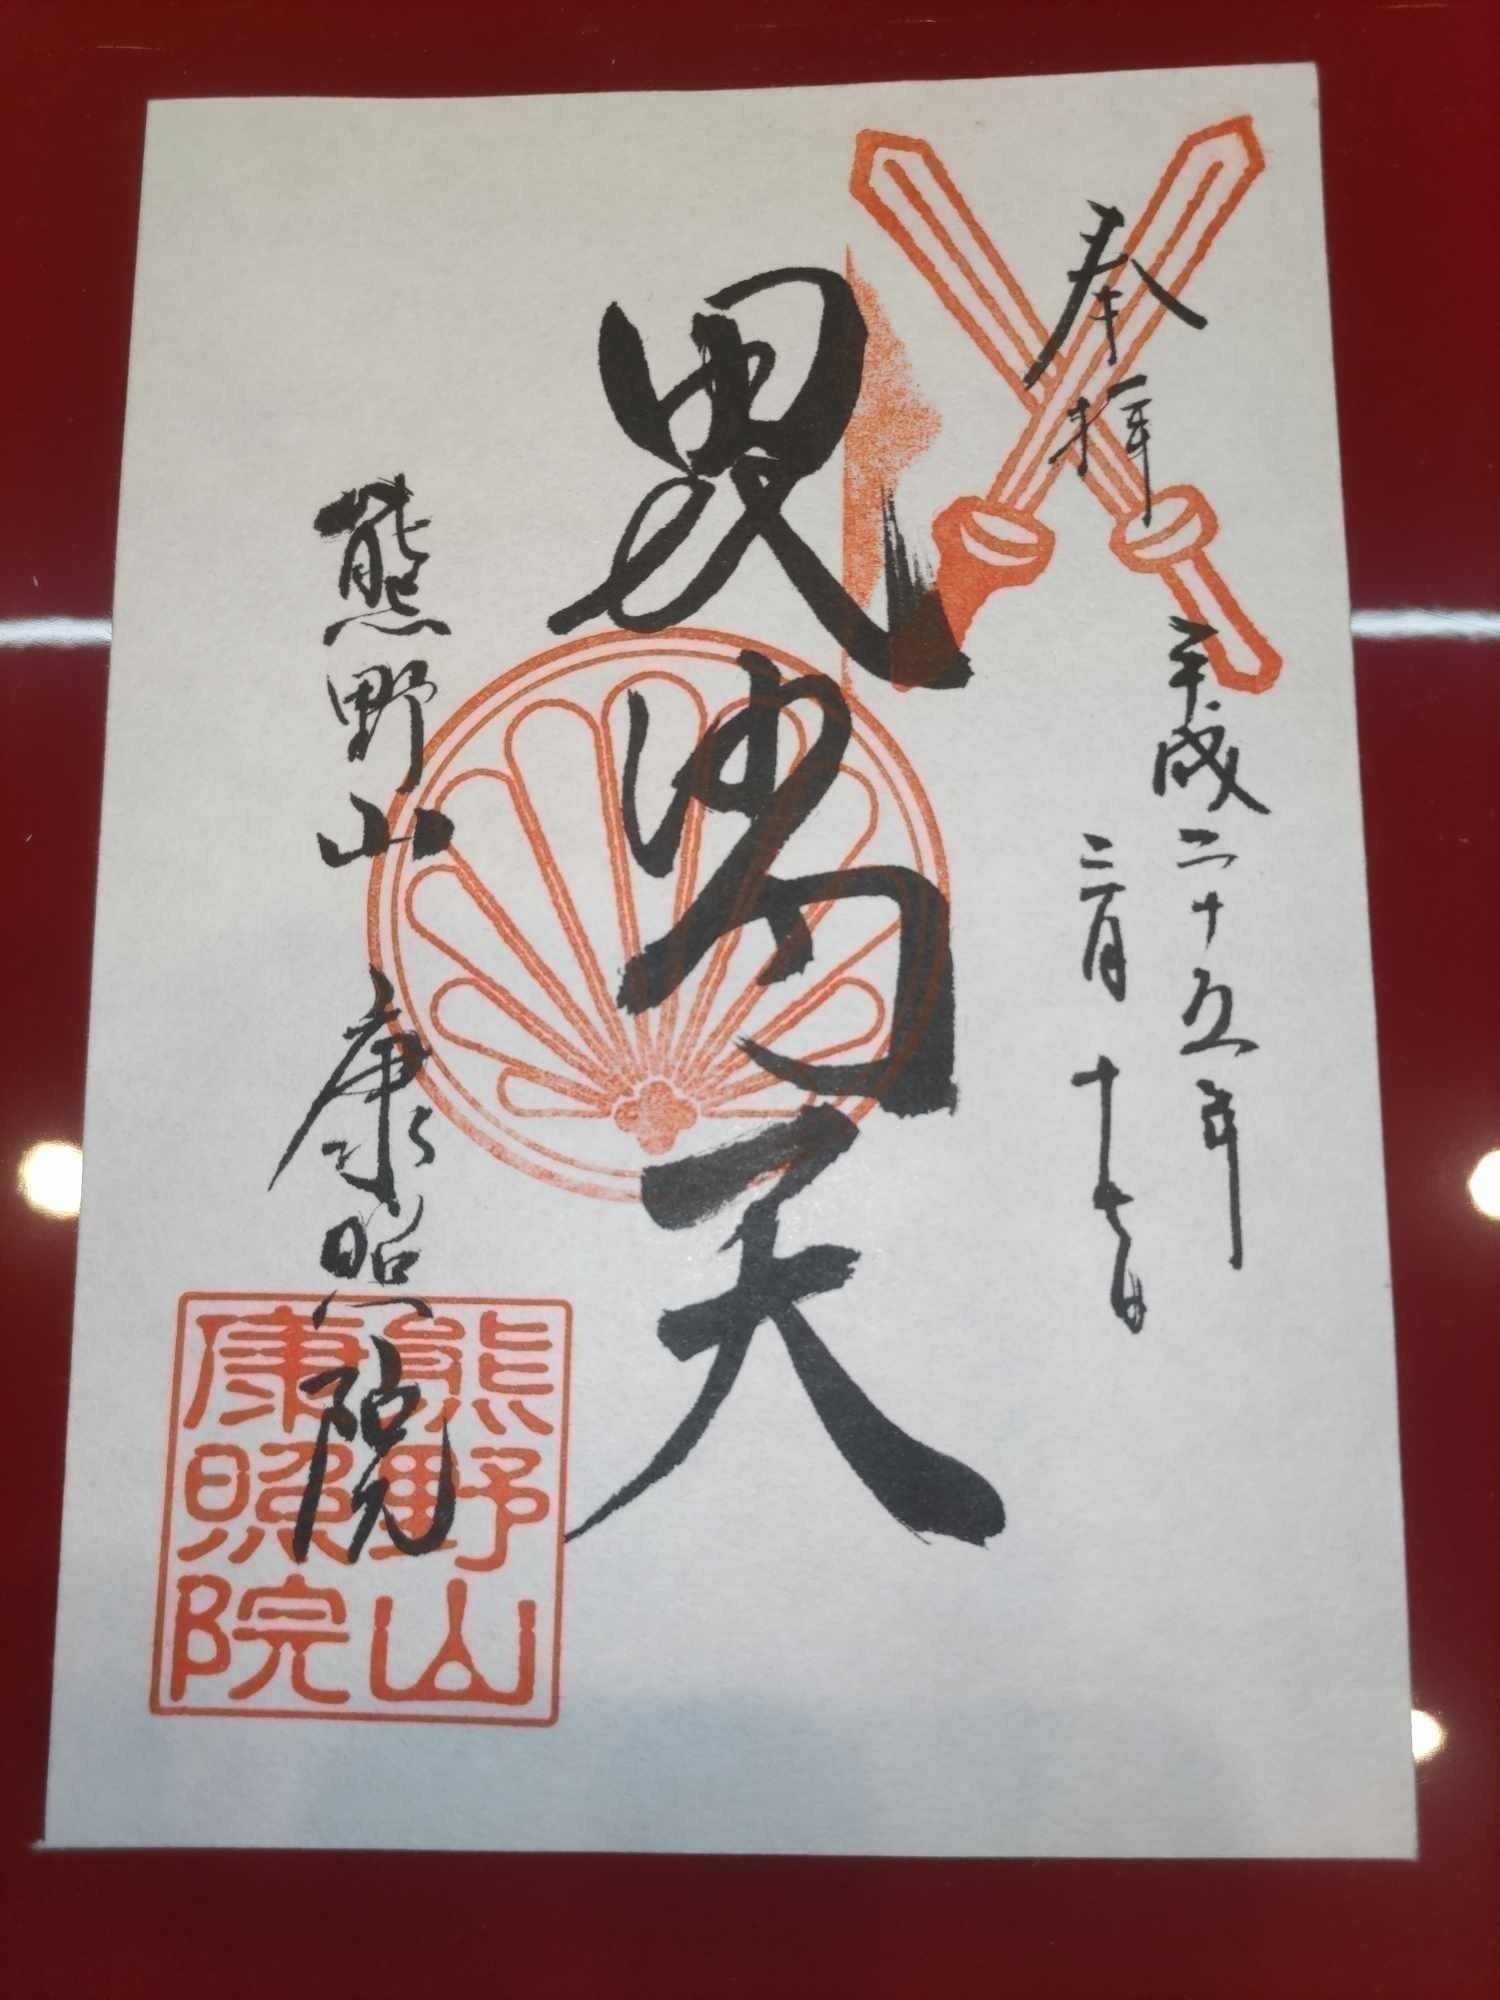 奉拝 平成二十五年
三月十七日
毘沙門天
熊野山 康照院
熊野山
康照院